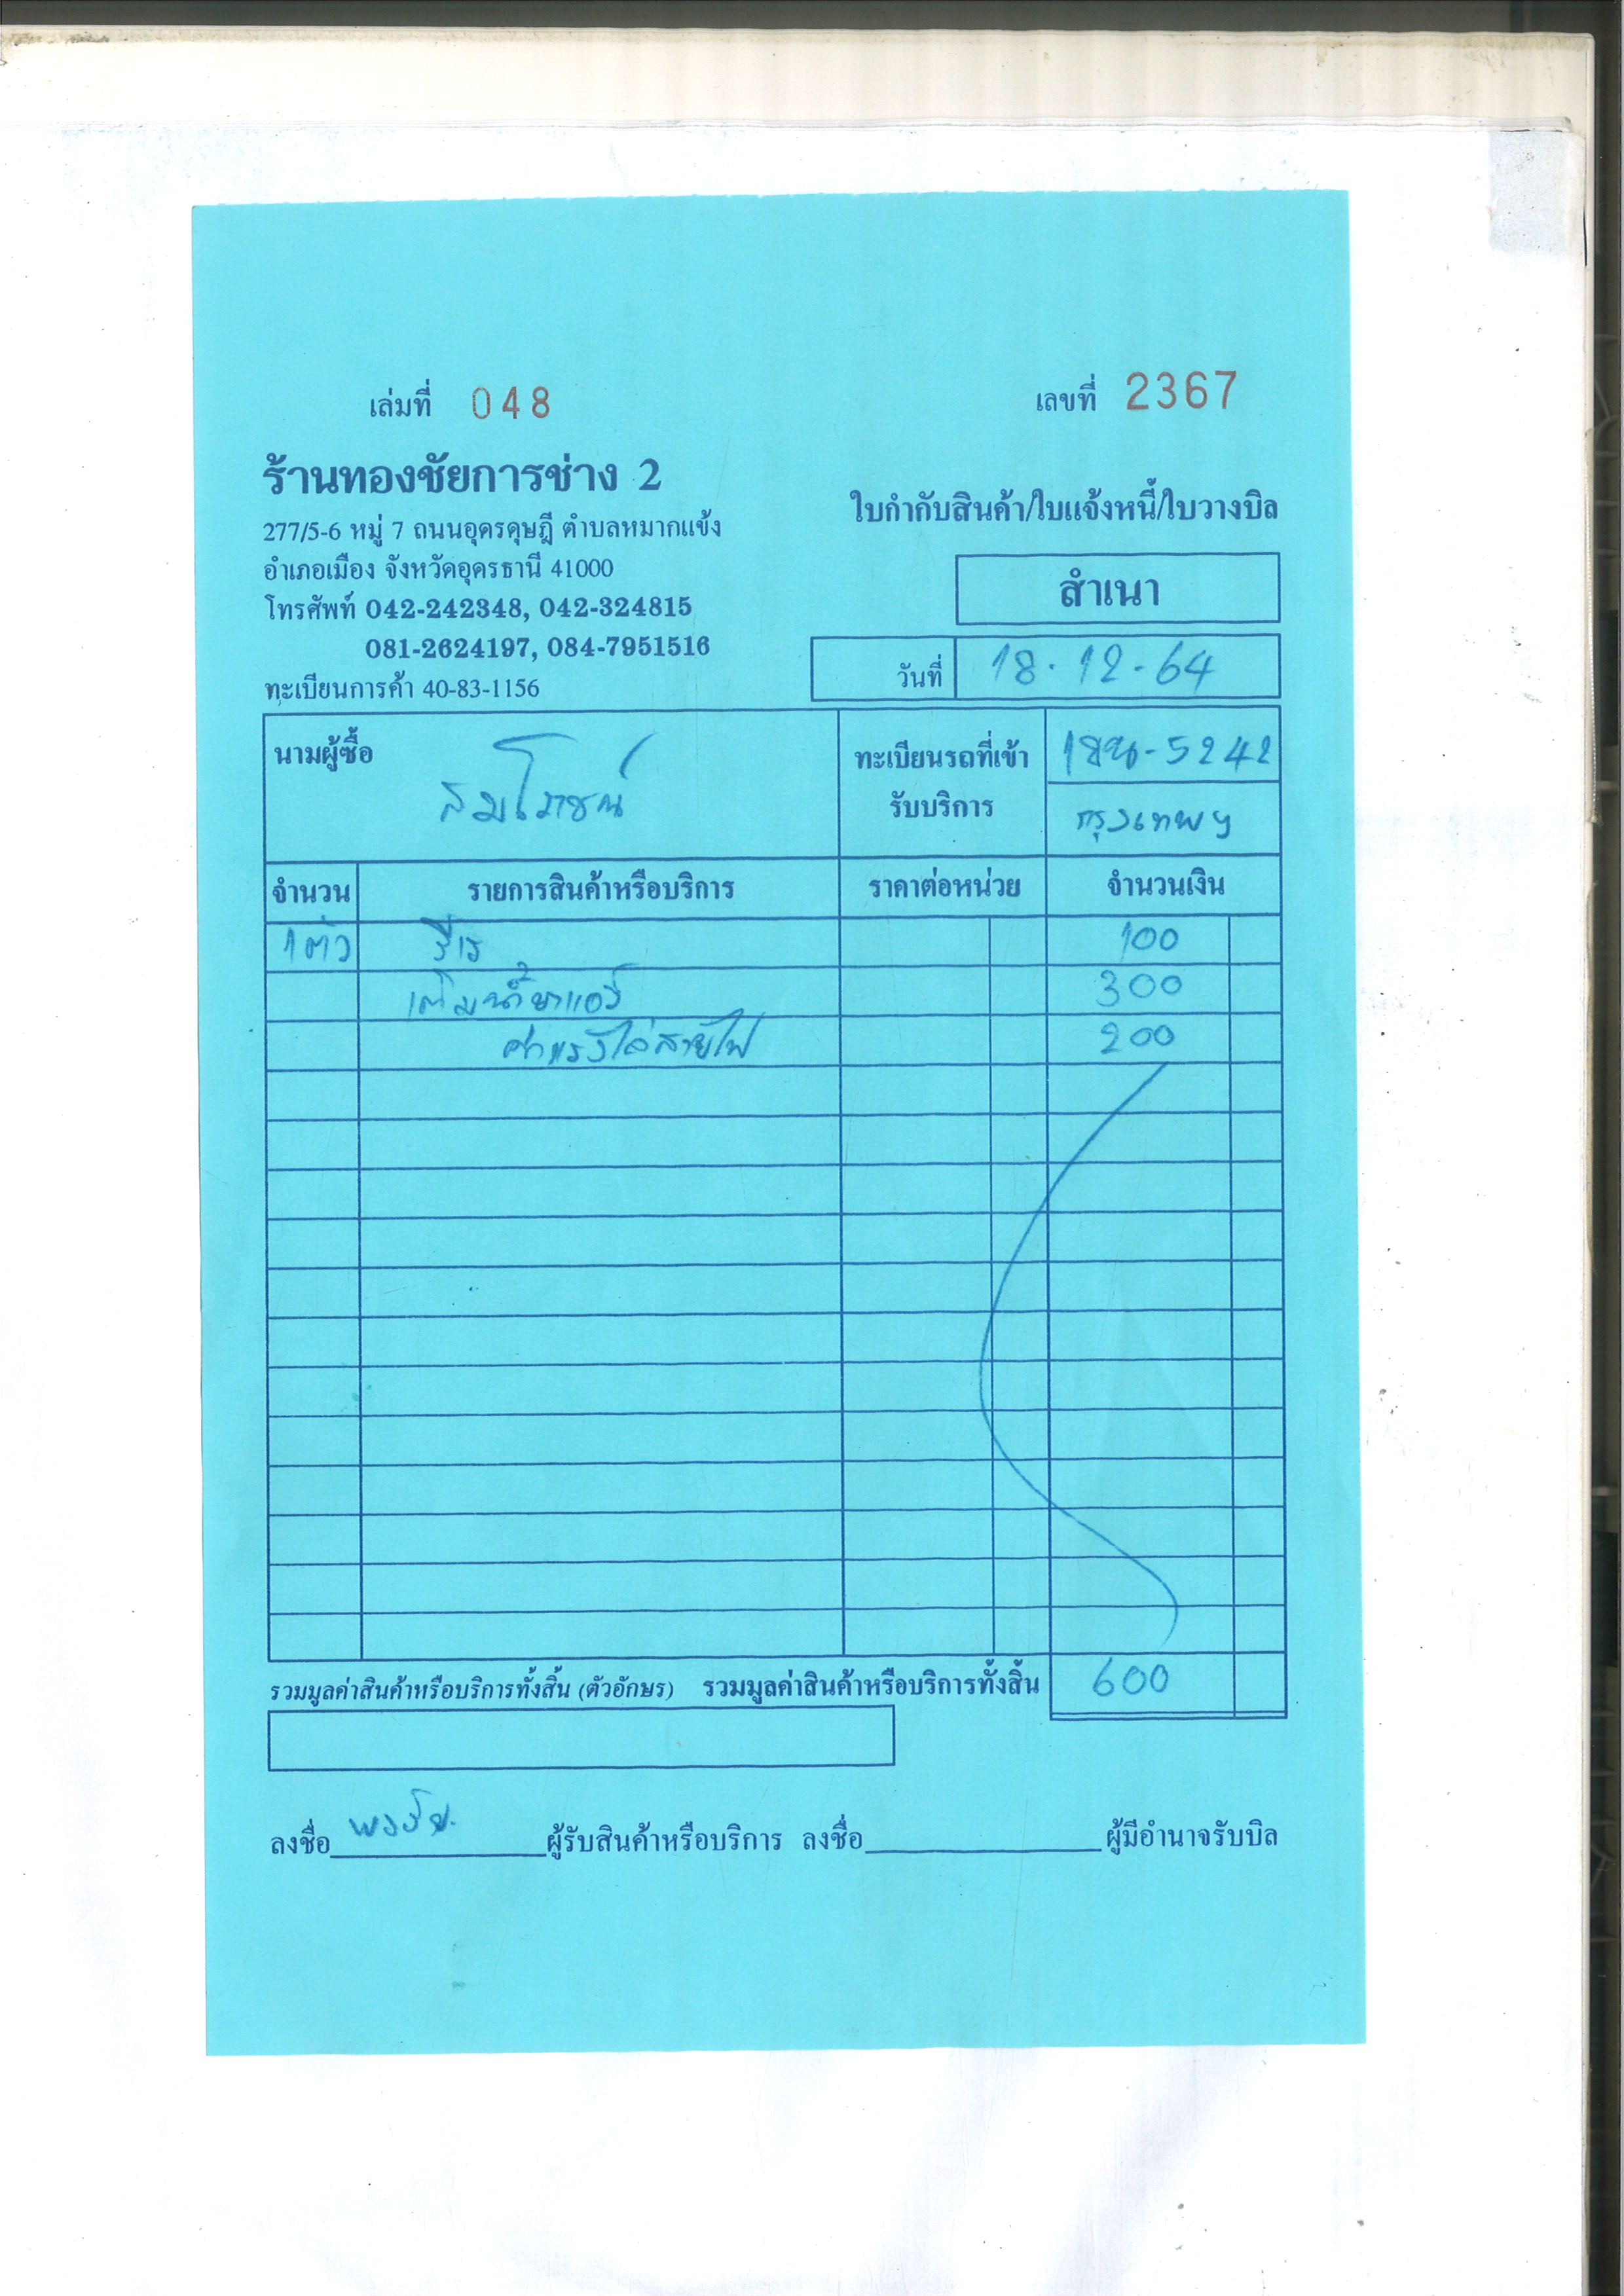 เล่มที่ 048
เลขที่ 2367
ร้านทองชัยการช่าง 2
277/5-6 หมู่ 7 ถนนอุดรดุษฎี ตำบลหมากแข้ง
อำเภอเมือง จังหวัดอุดรธานี 41000
โทรศัพท์ 042-242348, 042-324815
081-2624197, 084-7951516
ทะเบียนการค้า 40-83-1156
ใบกำกับสินค้า/ใบแจ้งหนี้/ใบวางบิล
สำเนา
วันที่ 18-12-64
นามผู้ซื้อ
ทะเบียนรถที่เข้า
รับบริการ
5242
กรุงเทพฯ
จำนวน รายการสินค้าหรือบริการ ราคาต่อหน่วย จำนวนเงิน
1 ตัว 100
เติมน้ำยาแอร์ 300
ค่าแรงไล่สายไฟ 200
รวมมูลค่าสินค้าหรือบริการทั้งสิ้น (ตัวอักษร) รวมมูลค่าสินค้าหรือบริการทั้งสิ้น 600
ลงชื่อ ผู้รับสินค้าหรือบริการ ลงชื่อ ผู้มีอำนาจรับบิล